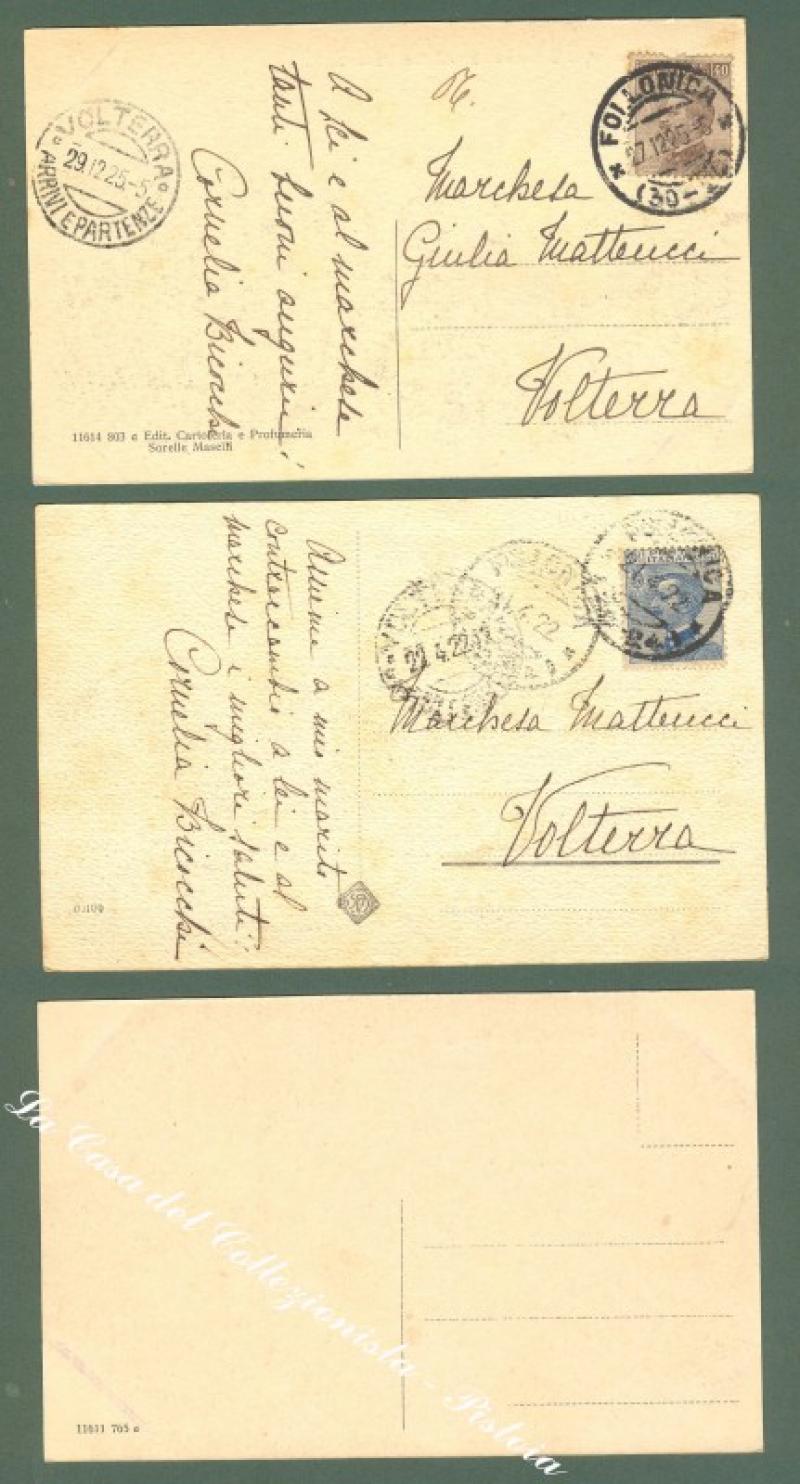 VOLTERRA
29.12.25.-5
ARRIVI E PARTENZE
A lei e al marchese
tanti buoni auguri!
Cornelia Bicocchi
N.
40
FOLLONICA
27.12.25.-5
(30-
Marchesa
Giulia Matteucci
Volterra
11614 803 c Edit. Cartoleria e Profumeria
Sorelle Maselli
Assieme a mio marito
contraccambio a lei e al
marchese i migliori saluti!
Cornelia Bicocchi
4.22
4.22
Marchesa Matteucci
Volterra
La Casa del Collezionista - Pistoia
11611 765 c